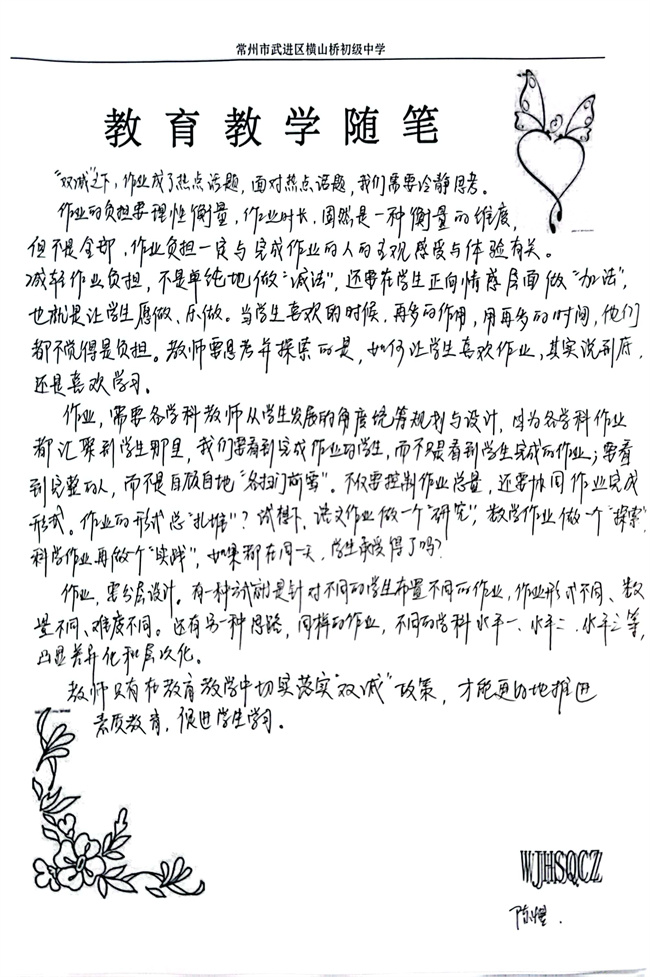 常州市武进区横山桥初级中学
教育教学随笔
“双减”之下，作业成了热点话题，面对热点话题，我们需要冷静思考。
作业的负担要理性衡量，作业时长，固然是一种衡量的维度，
但不是全部，作业负担一定与完成作业的人的主观感受与体验有关。
减轻作业负担，不是单纯地做“减法”，还要在学生正向情感层面做“加法”，
也就是让学生愿做、乐做。当学生喜欢的时候，再多的作用，用再多的时间，他们
都不觉得是负担。教师要思考并探索的是，如何让学生喜欢作业，其实说到底，
还是喜欢学习。
作业，需要各学科教师从学生发展的角度统筹规划与设计，因为各学科作业
都汇聚到学生那里，我们要看到完成作业的学生，而不只是看到学生完成的作业；要看
到完整的人，而不是自顾自地“各扫门前雪”。不仅要控制作业总量，还要协同作业完成
形式。作业的形式总“扎堆”？试想下，语文作业做一个“研究”，数学作业做一个“探索”，
科学作业再做个“实践”，如果都在同一天，学生承受得了吗？
作业，要分层设计。有一种方式就是针对不同的学生布置不同的作业，作业形式不同、数
量不同、难度不同。还有另一种思路，同样的作业，不同的学科水平一、水平二、水平三等，
凸显差异化和层次化。
教师只有在教育教学中切实落实“双减”政策，才能更好地推进
素质教育，促进学生学习。
WJHSQCZ